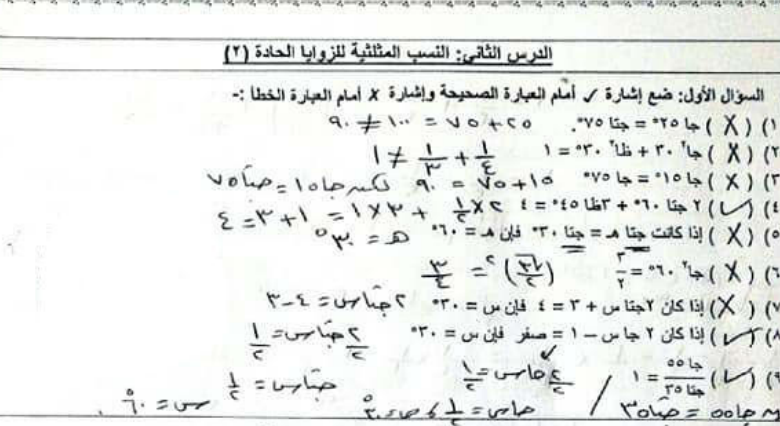 الدرس الثاني: النسب المثلثية للزوايا الحادة (٢)
السؤال الأول: ضع إشارة ✓ أمام العبارة الصحيحة وإشارة x أمام العبارة الخطأ :-
١) ( X ) جا ٢٥° = جتا ٧٥°. ٢٥ + ٧٥ = ١٠٠ ≠ ٩٠
٢) ( X ) جا² ٣٠ + ظا² ٣٠° = ١ ١/٤ + ١/٣ ≠ ١
٣) ( X ) جا ١٥° = جا ٧٥° ١٥ + ٧٥ = ٩٠ لكن جا ١٥ = جتا ٧٥
٤) ( ✓ ) ٢ جتا ٦٠° + ٣ظا ٤٥° = ٤ ٢ × ١/٢ + ٣ × ١ = ١ + ٣ = ٤
٥) ( X ) إذا كانت جتا هـ = جتا ٣٠° فإن هـ = ٦٠° هـ = ٣٠°
٦) ( X ) جا² ٦٠° = ٣/٢ (√٣/٢)² = ٣/٤
٧) ( X ) إذا كان ٢جتا س + ٣ = ٤ فإن س = ٣٠° ٢ جتا س = ٤ - ٣
٨) ( ✓ ) إذا كان ٢ جا س – ١ = صفر فإن س = ٣٠° ٢ جتا س / ٢ = ١/٢
٩) ( ✓ ) جا ٥٥ / جتا ٣٥ = ١ ٢ جا س / ٢ = ١/٢ ✓ جتا س = ١/٢
جا ٥٥ = جتا ٣٥ / جا س = ١/٢ س = ٣٠° س = ٦٠°